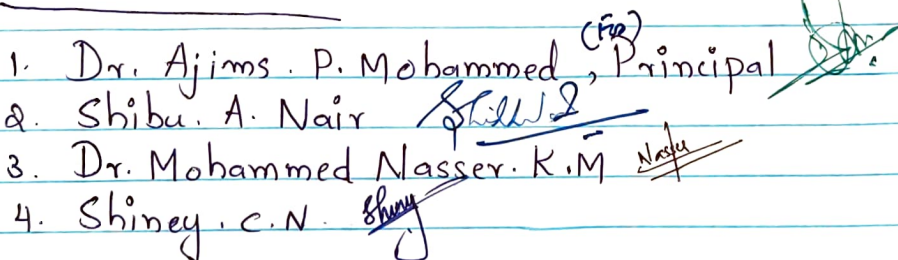 1. Dr. Ajims. P. Mohammed, Principal
2. Shibu. A. Nair
3. Dr. Mohammed Nasser. K.M Nasser
4. Shiney. C.N. Shiny